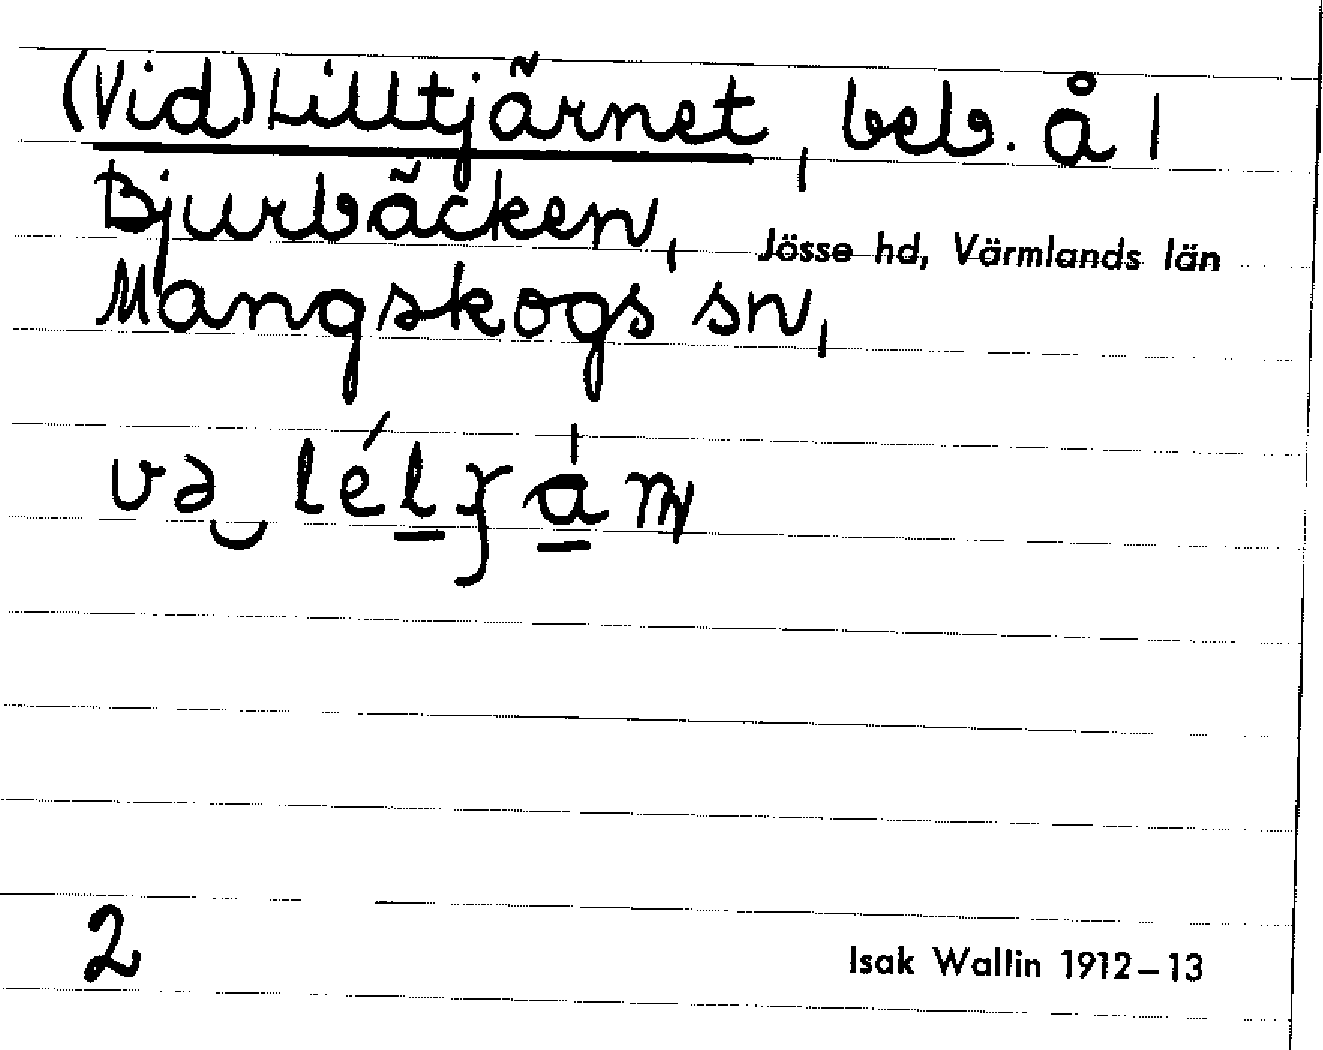 (Vid) Lilltjärnet, beb. å 1
Bjurbäcken,
Jösse hd, Värmlands län
Mangskogs sn,
və
2
Isak Wallin 1912–13